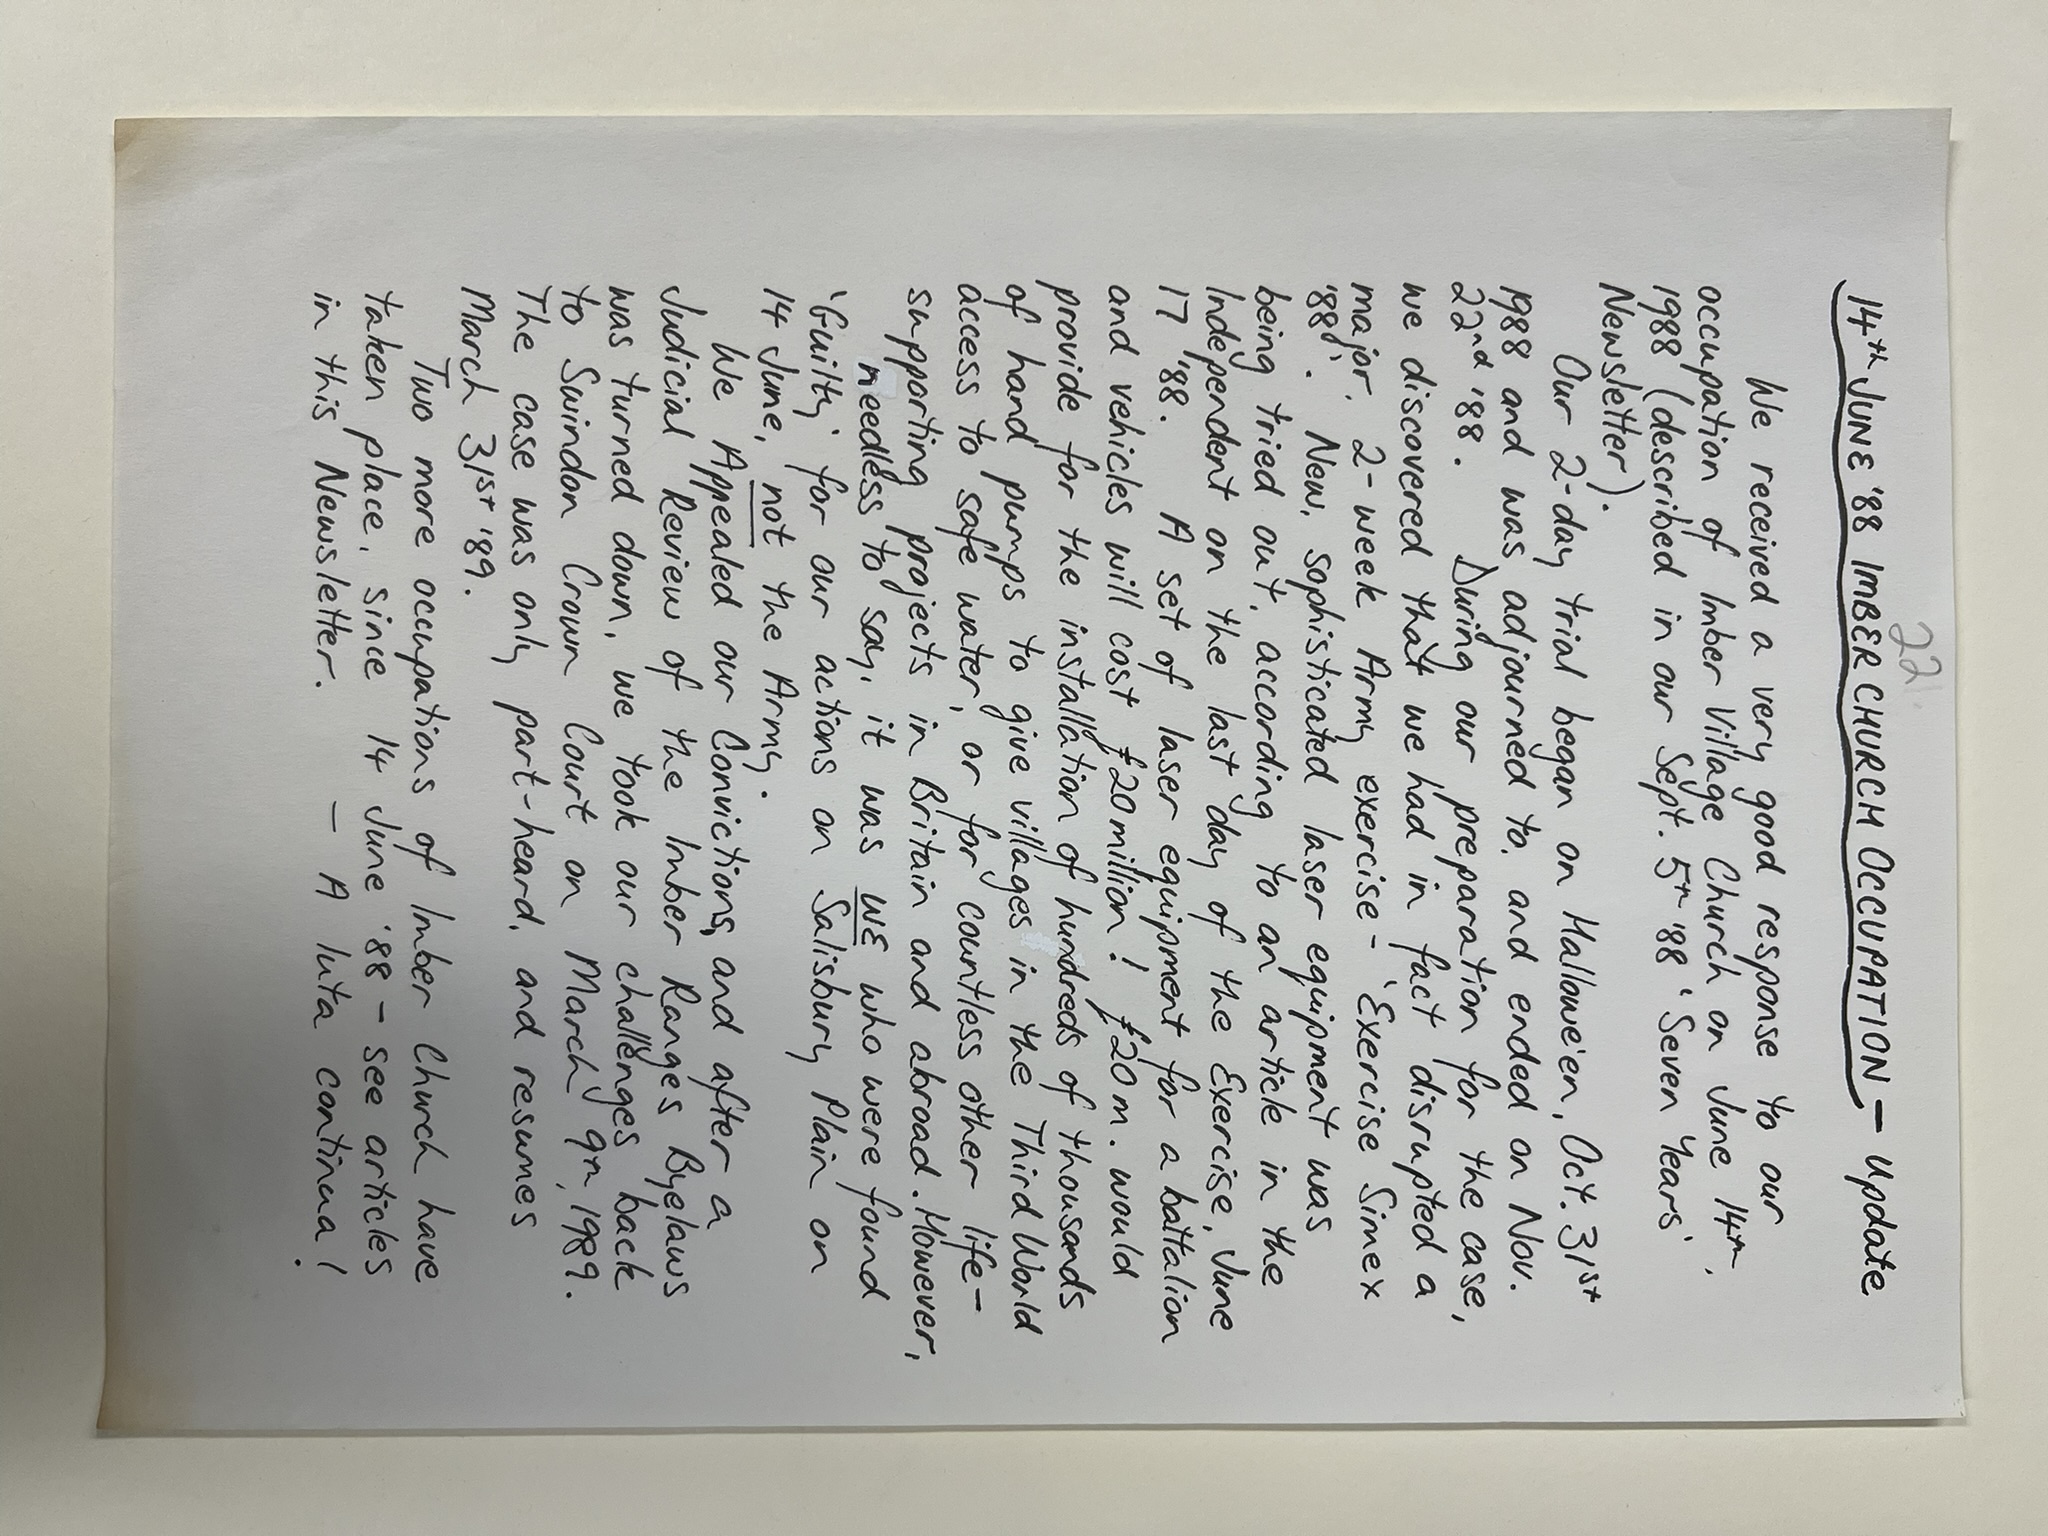 22
14th JUNE '88 IMBER CHURCH OCCUPATION – Update
We received a very good response to our
occupation of Imber Village Church on June 14th,
1988 (described in our Sept. 5th '88 'Seven Years'
Newsletter).
Our 2-day trial began on Hallowe'en, Oct. 31st
1988 and was adjourned to, and ended on Nov.
22nd '88. During our preparation for the case,
we discovered that we had in fact disrupted a
major, 2-week Army exercise - 'Exercise Simex
'88'. New, sophisticated laser equipment was
being tried out, according to an article in the
Independent on the last day of the Exercise, June
17 '88. A set of laser equipment for a battalion
and vehicles will cost £20 million! £20 m. would
provide for the installation of hundreds of thousands
of hand pumps to give villages in the Third World
access to safe water, or for countless other life-
supporting projects in Britain and abroad. However,
needless to say, it was WE who were found
'Guilty' for our actions on Salisbury Plain on
14 June, not the Army.
We Appealed our Convictions, and after a
Judicial Review of the Imber Ranges Byelaws
was turned down, we took our challenges back
to Swindon Crown Court on March 9th, 1989.
The case was only part-heard, and resumes
March 31st '89.
Two more occupations of Imber Church have
taken place, since 14 June '88 – see articles
in this Newsletter. – A luta continua!